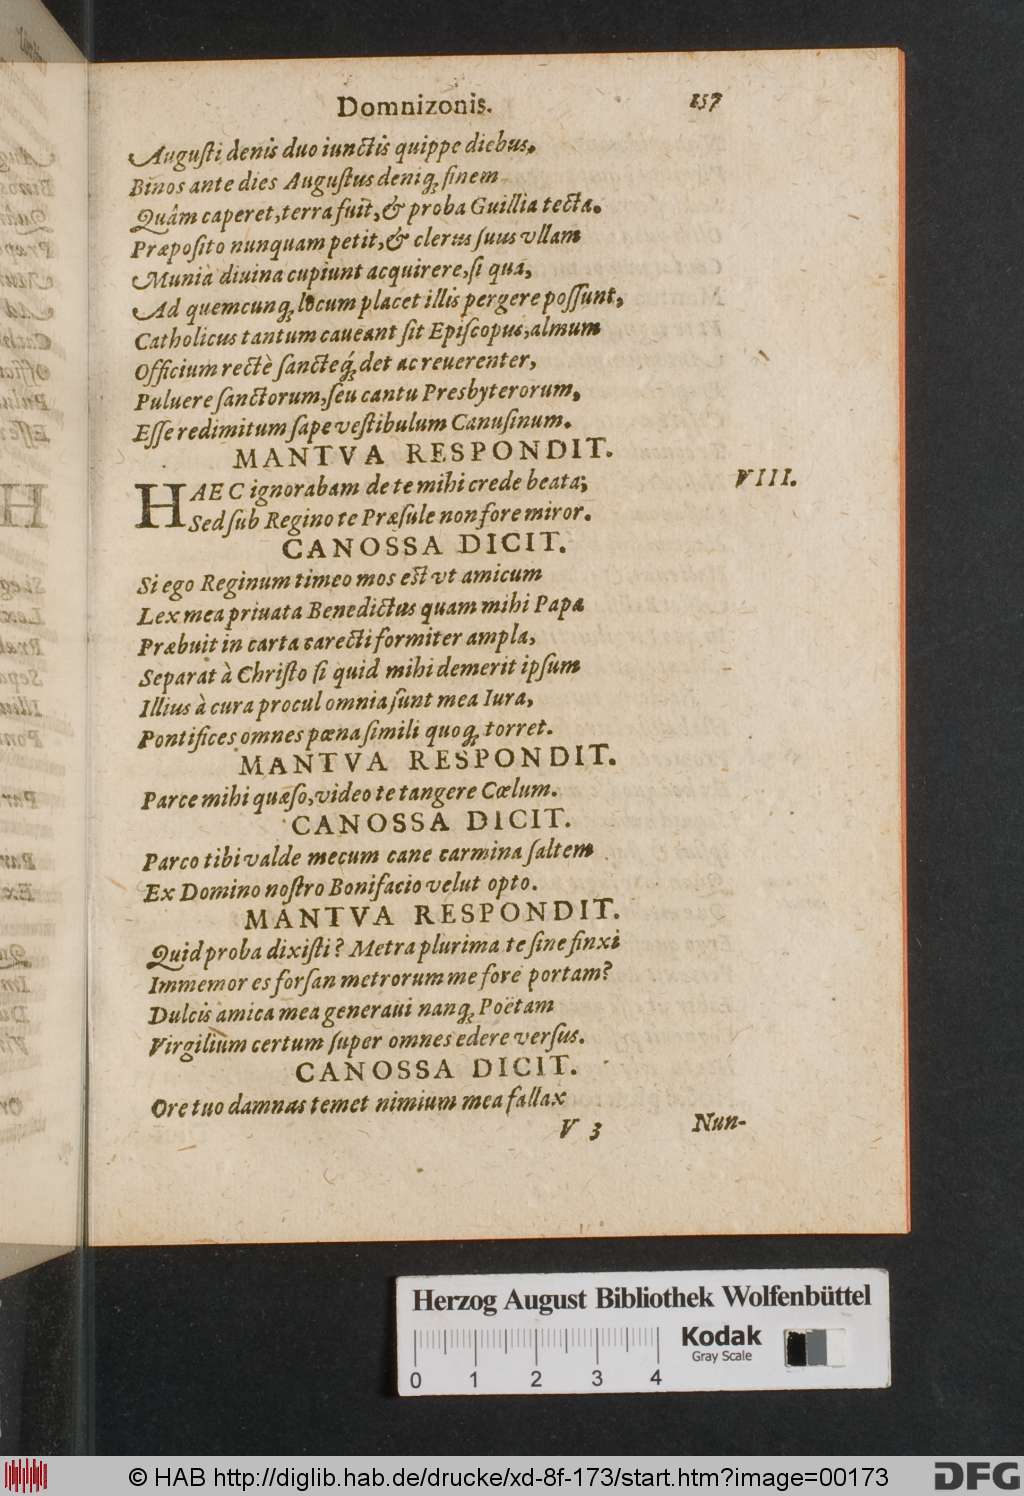 Domnizonis. 157
Augusti denis duo iunctis quippe diebus.
Binos ante dies Augustus deniq; finem
Quâm caperet, terra fuit, & proba Guillia tecta.
Præposito nunquam petit, & clerus suus vllam
Munia diuina cupiunt acquirere, si qua,
Ad quemcunq; locum placet illis pergere possunt,
Catholicus tantum caueant sit Episcopus, almum
Officium rectè sancteq́; det ac reuerenter,
Puluere sanctorum, seu cantu Presbyterorum,
Esse redimitum sape vestibulum Canusinum.
MANTVA RESPONDIT.
HAEC ignorabam de te mihi crede beata; VIII.
Sed sub Regino te Præsule non fore miror.
CANOSSA DICIT.
Si ego Reginum timeo mos est vt amicum
Lex mea priuata Benedictus quam mihi Papa
Præbuit in carta carecti formiter ampla,
Separat à Christo si quid mihi demerit ipsum
Illius à cura procul omnia sunt mea Iura,
Pontifices omnes pœna simili quoq; torret.
MANTVA RESPONDIT.
Parce mihi quæso, video te tangere Cœlum.
CANOSSA DICIT.
Parco tibi valde mecum cane carmina saltem
Ex Domino nostro Bonifacio velut opto.
MANTVA RESPONDIT.
Quid proba dixisti? Metra plurima te sine finxi
Immemor es forsan metrorum me fore portam?
Dulcis amica mea generaui nanq; Poëtam
Virgilium certum super omnes edere versus.
CANOSSA DICIT.
Ore tuo damnas temet nimium mea fallax
V 3 Nun-
Herzog August Bibliothek Wolfenbüttel
Kodak
Gray Scale
0 1 2 3 4
© HAB http://diglib.hab.de/drucke/xd-8f-173/start.htm?image=00173
DFG